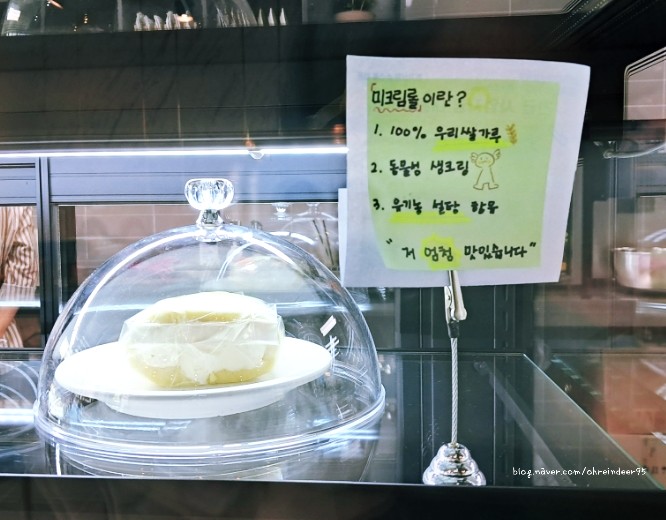 미크림롤이란?
1. 100% 우리쌀가루
2. 동물성 생크림
3. 유기농 설탕 함유
"거 엄청 맛있습니다"
blog.naver.com/ohreindeer95